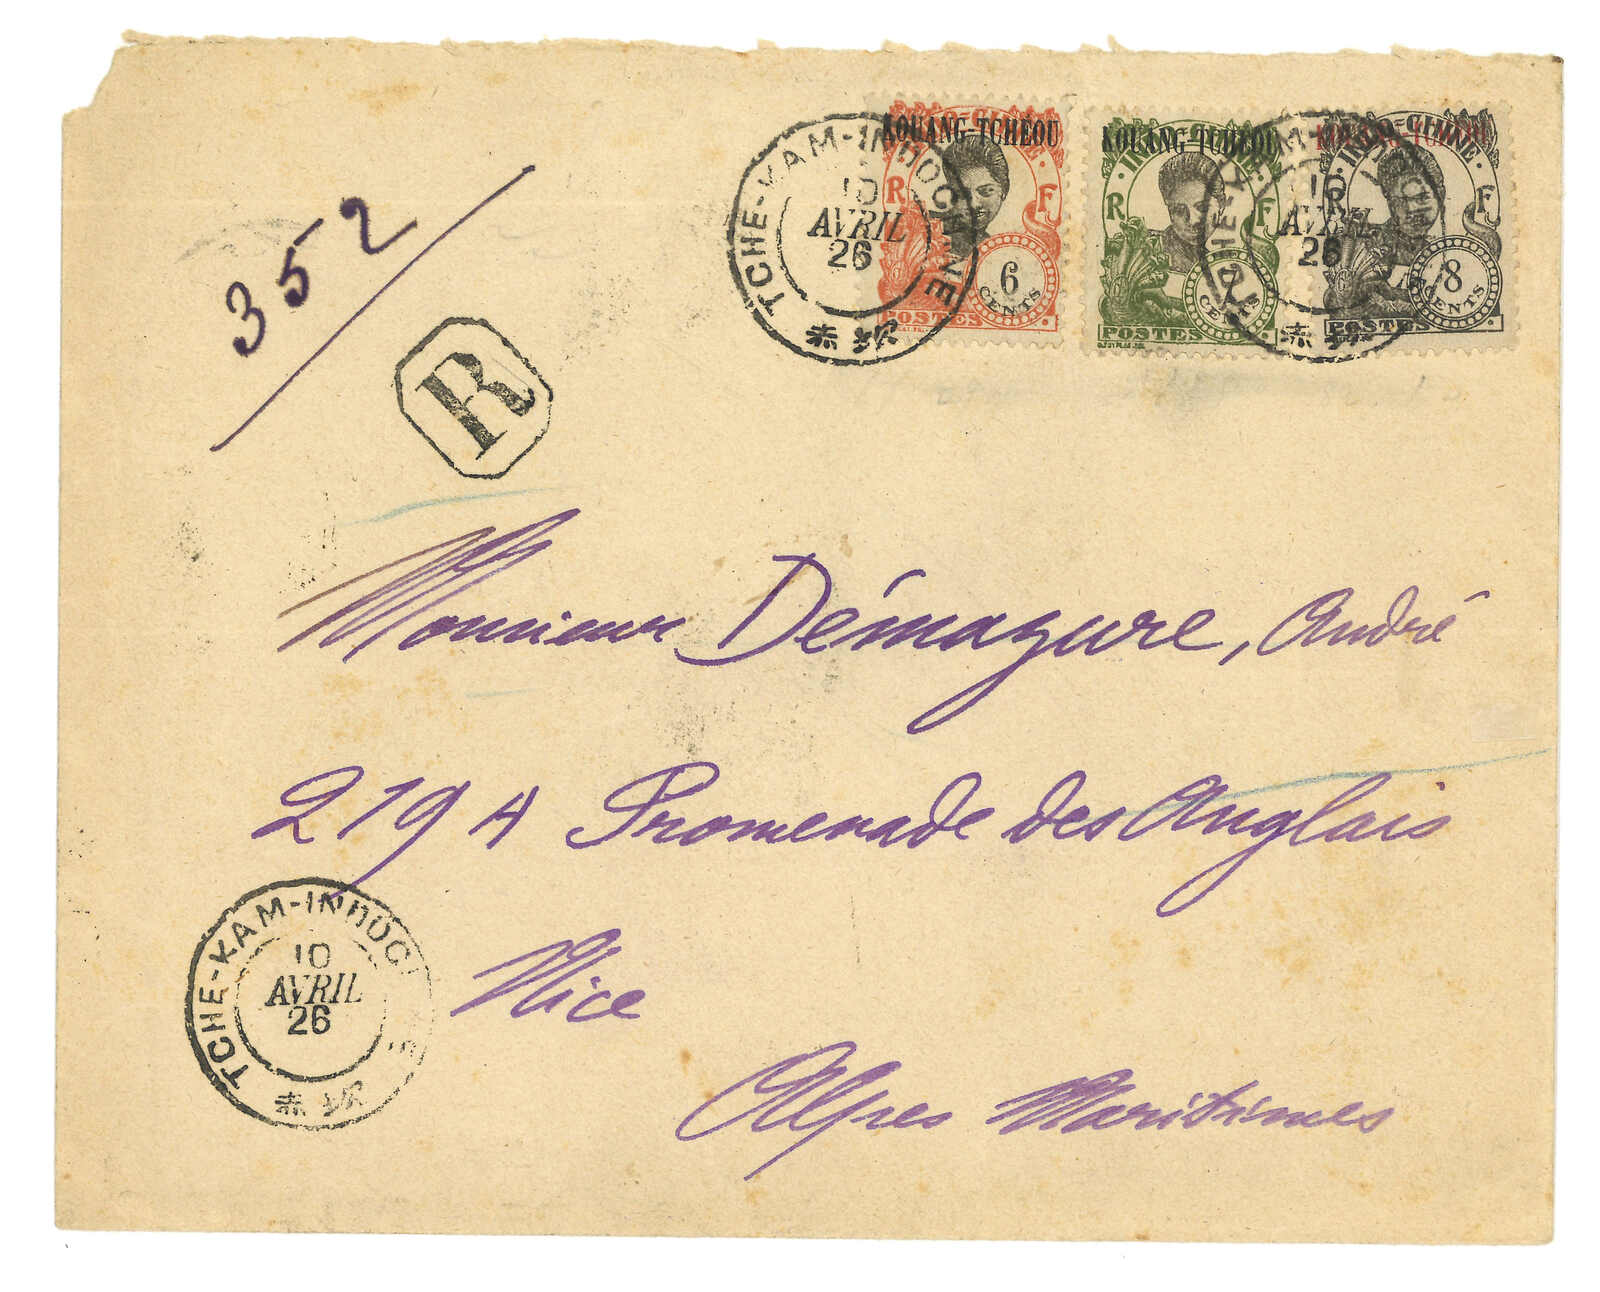 352
R
TCHE-KAM-INDOCHINE
10
AVRIL
26
赤坎
KOUANG-TCHÉOU
R F
6
CENTS
POSTES
KOUANG-TCHÉOU
R F
7
CENTS
POSTES
KOUANG-TCHÉOU
INDO-CHINE
R F
8
CENTS
POSTES
10
AVRIL
26
赤坎
Monsieur Démazure, André
219 A Promenade des Anglais
Nice
Alpes Maritimes
TCHE-KAM-INDOCHINE
10
AVRIL
26
赤坎